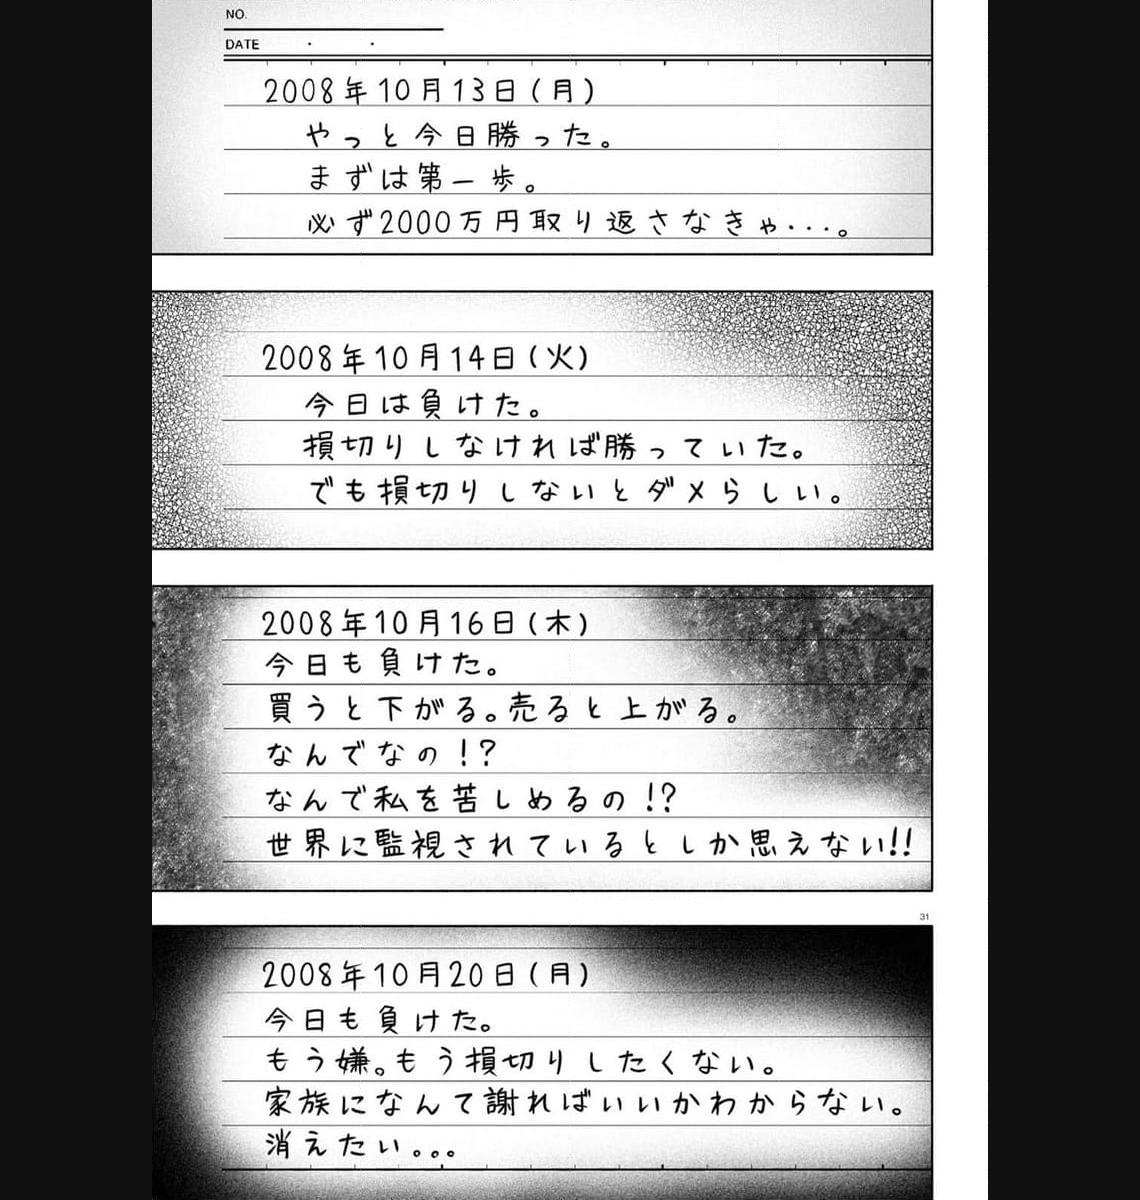 NO.
DATE ・ ・
2008年10月13日(月)
やっと今日勝った。
まずは第一歩。
必ず2000万円取り返さなきゃ・・・。
2008年10月14日(火)
今日は負けた。
損切りしなければ勝っていた。
でも損切りしないとダメらしい。
2008年10月16日(木)
今日も負けた。
買うと下がる。売ると上がる。
なんでなの!?
なんで私を苦しめるの!?
世界に監視されているとしか思えない!!
31
2008年10月20日(月)
今日も負けた。
もう嫌。もう損切りしたくない。
家族になんて謝ればいいかわからない。
消えたい。。。